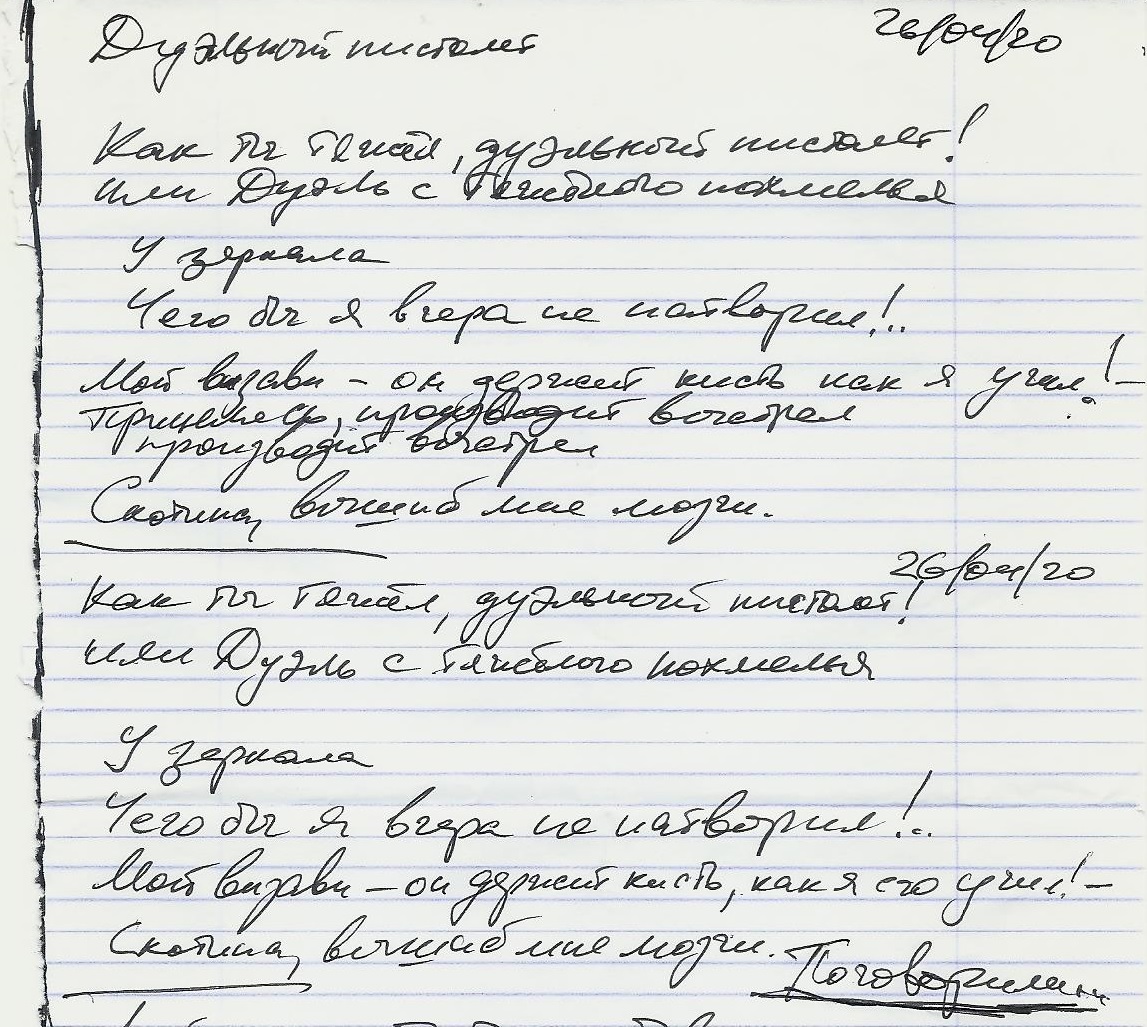 Дуэльный пистолет 26/04/20
Как ты тяжёл, дуэльный пистолет!
или Дуэль с тяжёлого похмелья
У зеркала
Чего бы я вчера не натворил!..
Мой визави – он держит кисть как я учил! –
Прицелясь, производит выстрел
производит выстрел
Скотина, вышиб мне мозги.
26/04/20
Как ты тяжёл, дуэльный пистолет!
или Дуэль с тяжёлого похмелья
У зеркала
Чего бы я вчера не натворил!..
Мой визави – он держит кисть, как я его учил! –
Скотина, вышиб мне мозги.
Поговорили...